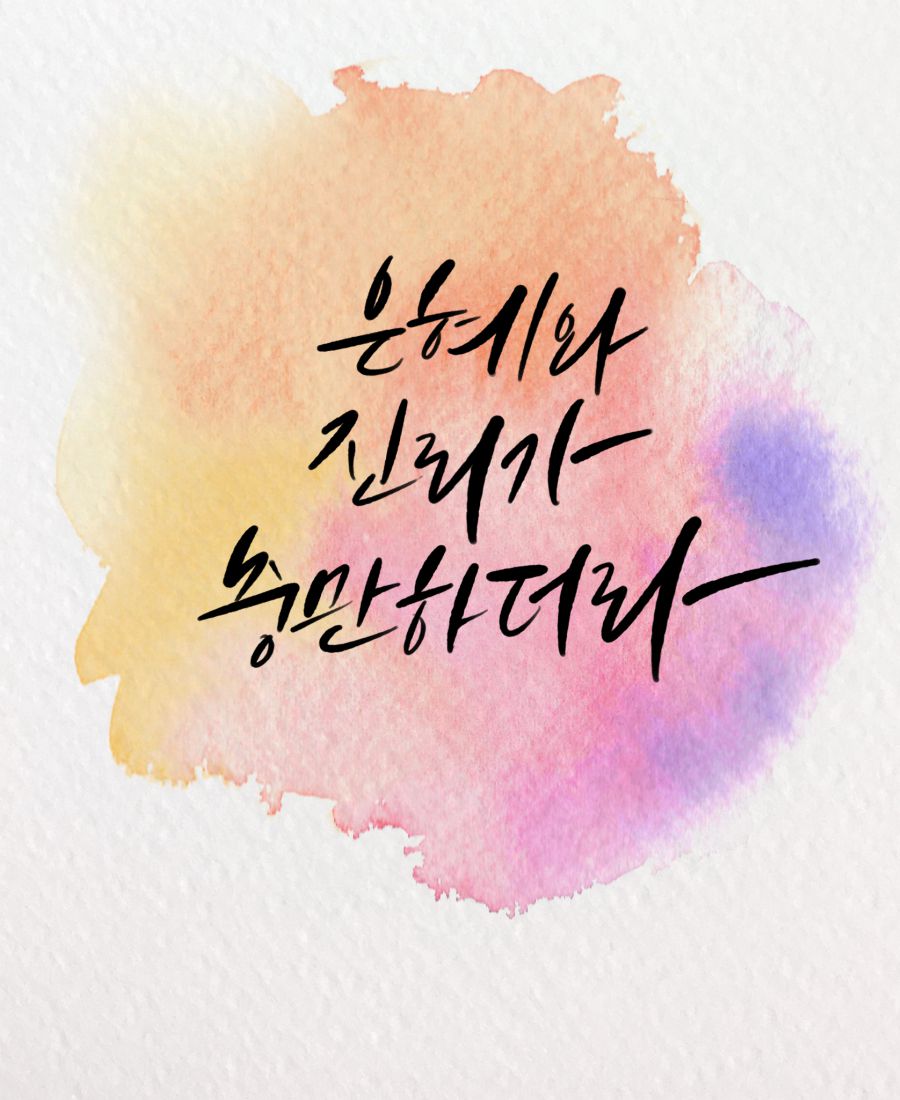 은혜와
진리가
충만하더라